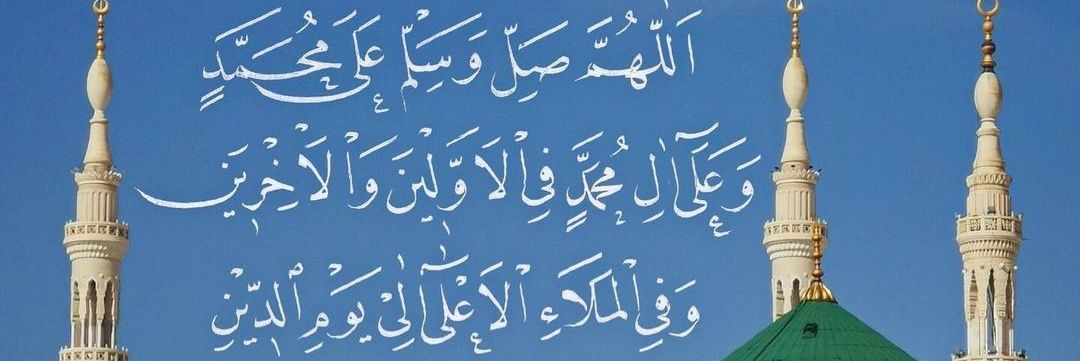 اَللّٰهُمَّ صَلِّ وَسَلِّمْ عَلَى مُحَمَّدٍ
وَعَلَىٰ آلِ مُحَمَّدٍ فِي الْاَوَّلِينَ وَالْاٰخِرِينَ
وَفِي الْمَلَاءِ الْاَعْلَىٰ اِلَىٰ يَوْمِ الدِّينِ